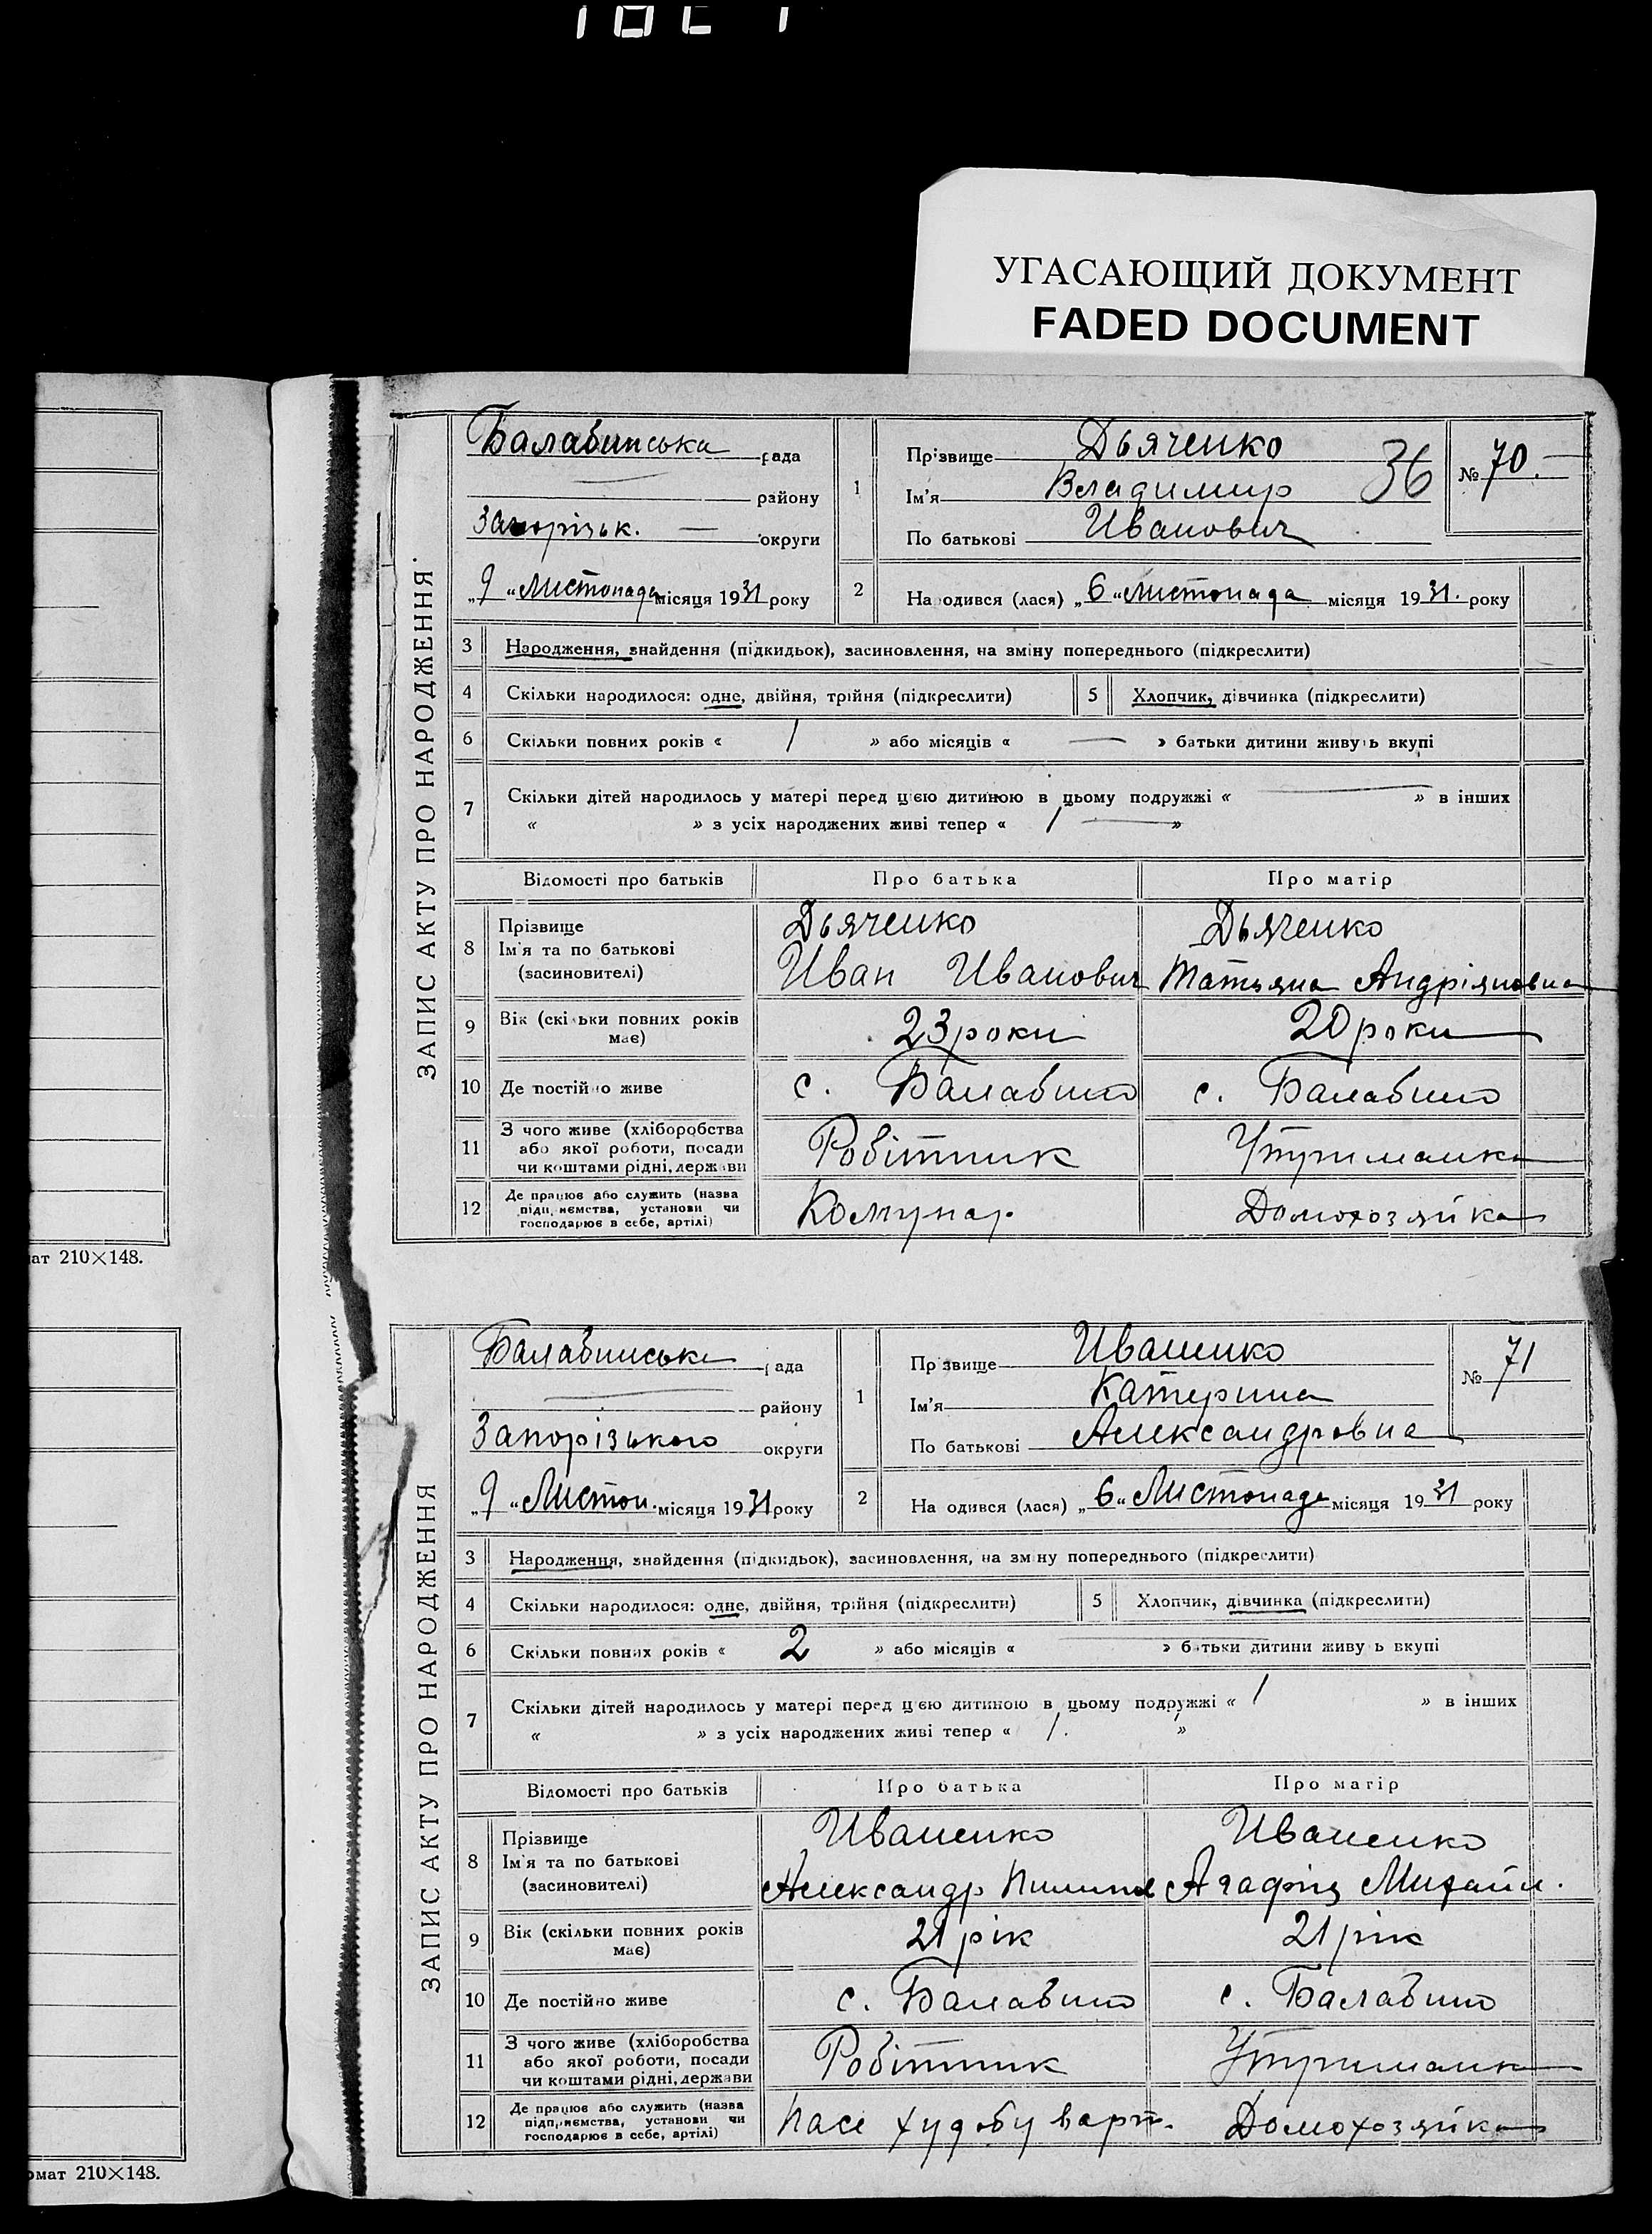 УГАСАЮЩИЙ ДОКУМЕНТ
FADED DOCUMENT
ЗАПИС АКТУ ПРО НАРОДЖЕННЯ
Балабинська рада
району
Запорізьк. — округи
„9“ Листопада місяця 1931 року
1
Прізвище Дьяченко
Ім'я Владимир 36
По батькові Иванович
№ 70.—
2 Народився (лася) „6“ Листопада місяця 1931. року
3 Народження, знайдення (підкидьок), засиновлення, на зміну попереднього (підкреслити)
4 Скільки народилося: одне, двійня, трійня (підкреслити) 5 Хлопчик, дівчинка (підкреслити)
6 Скільки повних років « 1 » або місяців « — » батьки дитини живуть вкупі
7 Скільки дітей народилось у матері перед цією дитиною в цьому подружжі « — » в інших
« » з усіх народжених живі тепер « 1 — »
Відомості про батьків Про батька Про матір
8 Прізвище Дьяченко Дьяченко
Ім'я та по батькові Иван Иванович Татьяна Андріяновна
(засиновителі)
9 Вік (скільки повних років має) 23 роки 20 роки
10 Де постійно живе с. Балабино с. Балабино
11 З чого живе (хліборобства
або якої роботи, посади Робітник Утриманка
чи коштами рідні, держави
12 Де працює або служить (назва
підприємства, установи чи Комунар Домохозяйка
господарює в себе, артілі)
ат 210×148.
ЗАПИС АКТУ ПРО НАРОДЖЕННЯ
Балабинська рада
району
Запорізького округи
„9“ Листоп. місяця 1931 року
1
Прізвище Иваненко
Ім'я Катерина
По батькові Александровна
№ 71
2 Народився (лася) „6“ Листопада місяця 1931 року
3 Народження, знайдення (підкидьок), засиновлення, на зміну попереднього (підкреслити)
4 Скільки народилося: одне, двійня, трійня (підкреслити) 5 Хлопчик, дівчинка (підкреслити)
6 Скільки повних років « 2 » або місяців « — » батьки дитини живуть вкупі
7 Скільки дітей народилось у матері перед цією дитиною в цьому подружжі « 1 » в інших
« » з усіх народжених живі тепер « 1. »
Відомості про батьків Про батька Про матір
8 Прізвище Иваненко Иваненко
Ім'я та по батькові Александр Агафія Михайл.
(засиновителі)
9 Вік (скільки повних років має) 21 рік 21 рік
10 Де постійно живе с. Балабино с. Балабино
11 З чого живе (хліборобства
або якої роботи, посади Робітник Утриманка
чи коштами рідні, держави
12 Де працює або служить (назва
підприємства, установи чи Пасе худобу варт. Домохозяйка
господарює в себе, артілі)
рмат 210×148.